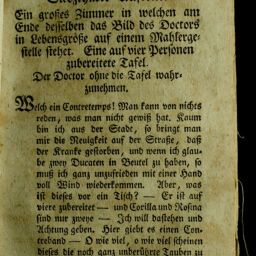 Ein großes Zimmer in welchem am
Ende desselben das Bild des Doctors
in Lebensgröße auf einem Mahlerge-
stelle stehet. Eine auf vier Personen
zubereitete Tafel.
Der Doctor ohne die Tafel wahr-
zunehmen.
Welch ein Contretemps! Man kann von nichts
reden, was man nicht gewiß hat. Kaum
bin ich aus der Stade, so bringt man
mir die Neuigkeit auf der Straße, daß
der Kranke gestorben, und wenn ich glau-
be zwey Ducaten in Beutel zu haben, so
muß ich ganz unzufrieden mit einer Hand
voll Wind wiederkommen. Aber, was
ist dieses vor ein Tisch? — Er ist auf
viere zubereitet — und Corilla und Rosina
sind nur zweye — Ich will dastehen und
Achtung geben. Hier giebt es einen Con-
treband — O wie viel, o wie viel scheinen
dieses die noch ganz unberührte Tauben zu